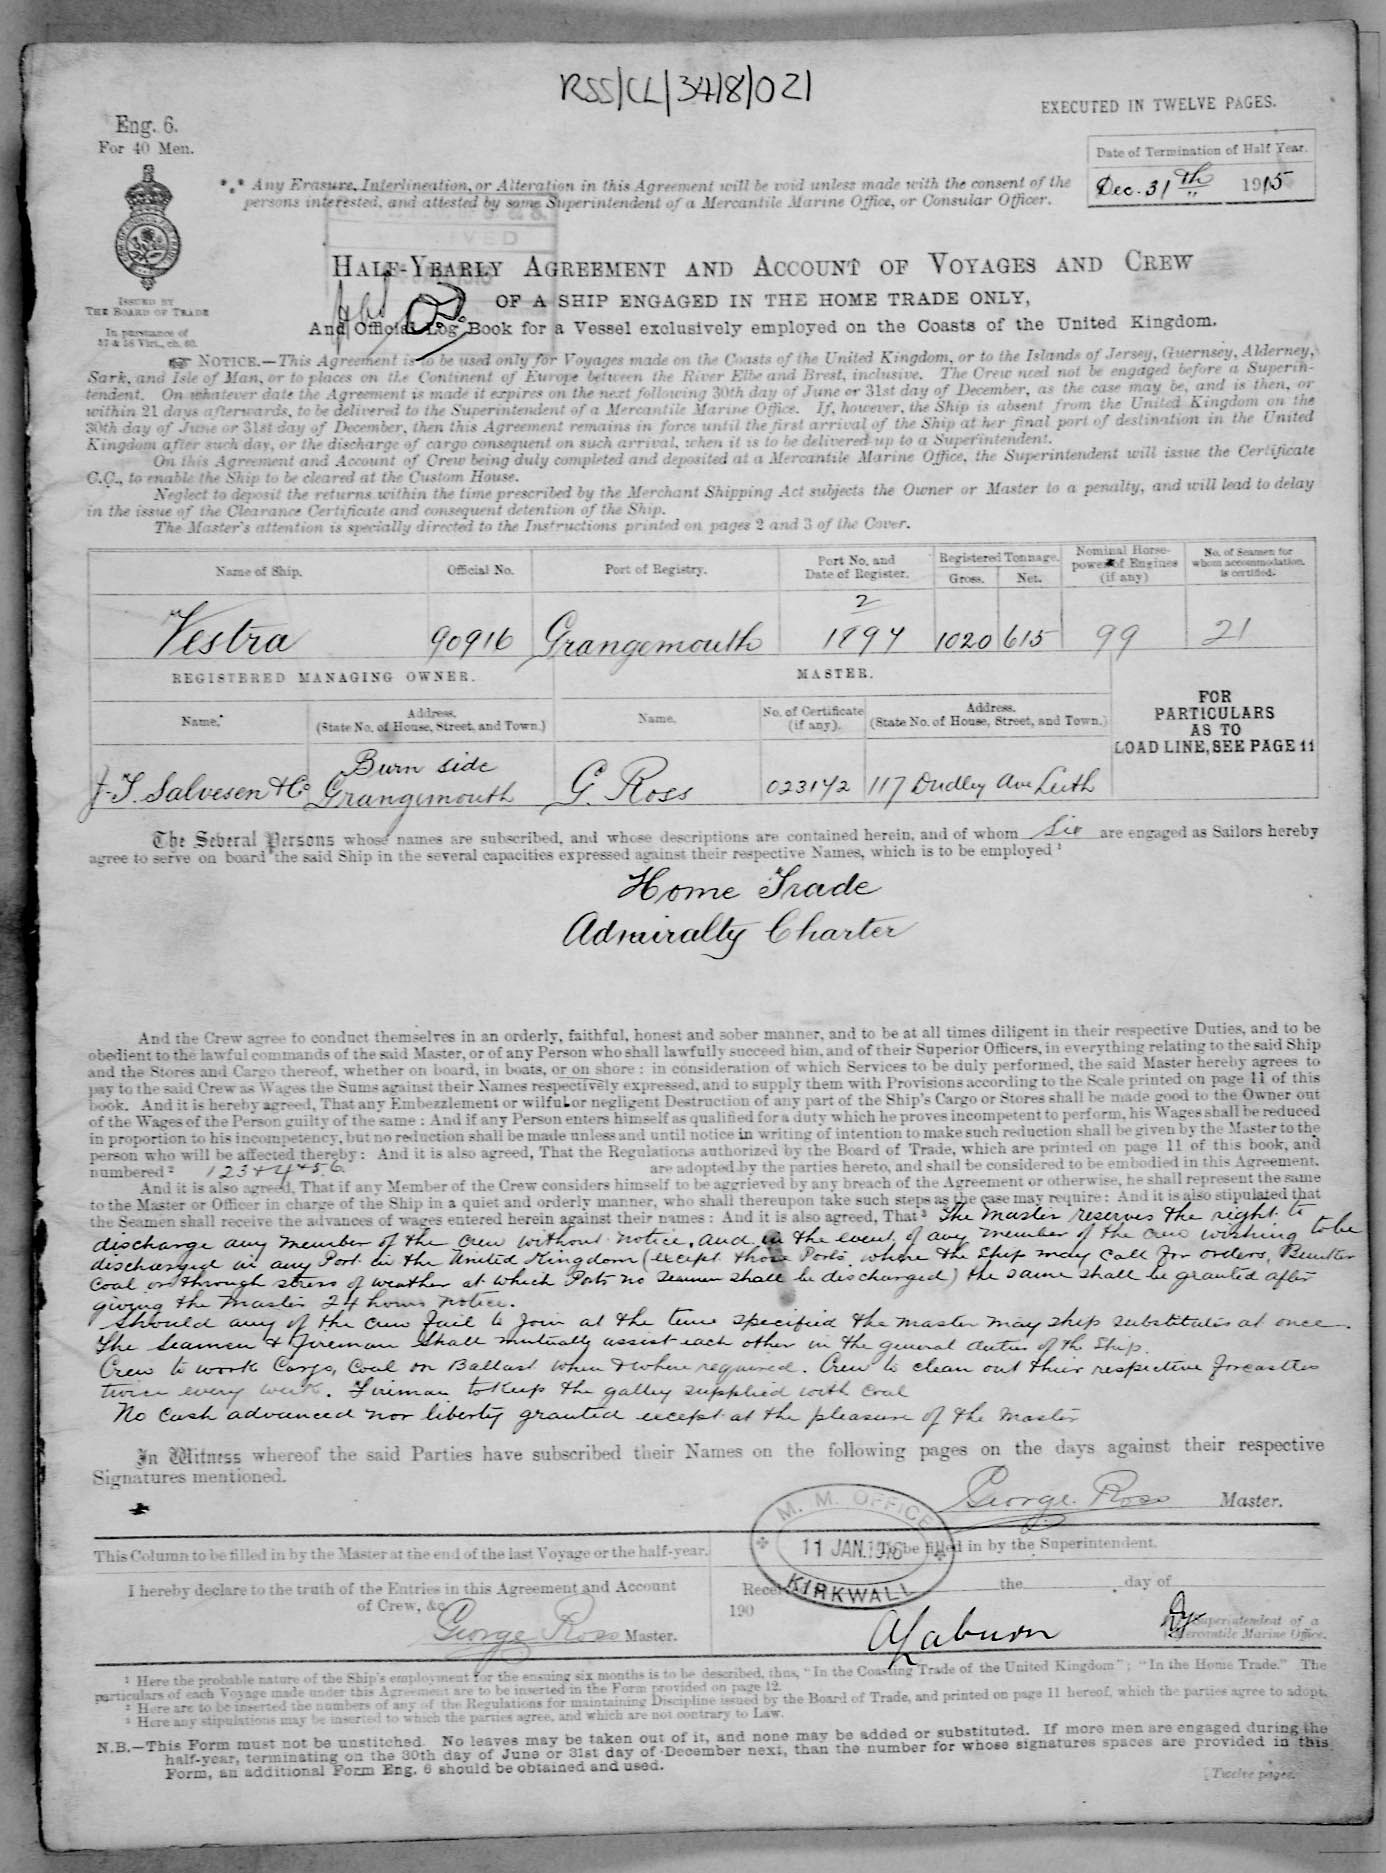 RSS/CL/34/8/021
EXECUTED IN TWELVE PAGES.
Eng. 6.
For 40 Men.
Date of Termination of Half Year.
Dec. 31th 1915
*** Any Erasure, Interlineation, or Alteration in this Agreement will be void unless made with the consent of the
persons interested, and attested by some Superintendent of a Mercantile Marine Office, or Consular Officer.
ISSUED BY
THE BOARD OF TRADE
In pursuance of
57 & 58 Vict., ch. 60.
HALF-YEARLY AGREEMENT AND ACCOUNT OF VOYAGES AND CREW
OF A SHIP ENGAGED IN THE HOME TRADE ONLY,
And Official Log Book for a Vessel exclusively employed on the Coasts of the United Kingdom.
NOTICE.—This Agreement is to be used only for Voyages made on the Coasts of the United Kingdom, or to the Islands of Jersey, Guernsey, Alderney,
Sark, and Isle of Man, or to places on the Continent of Europe between the River Elbe and Brest, inclusive. The Crew need not be engaged before a Superin-
tendent. On whatever date the Agreement is made it expires on the next following 30th day of June or 31st day of December, as the case may be, and is then, or
within 21 days afterwards, to be delivered to the Superintendent of a Mercantile Marine Office. If, however, the Ship is absent from the United Kingdom on the
30th day of June or 31st day of December, then this Agreement remains in force until the first arrival of the Ship at her final port of destination in the United
Kingdom after such day, or the discharge of cargo consequent on such arrival, when it is to be delivered up to a Superintendent.
On this Agreement and Account of Crew being duly completed and deposited at a Mercantile Marine Office, the Superintendent will issue the Certificate
C.C., to enable the Ship to be cleared at the Custom House.
Neglect to deposit the returns within the time prescribed by the Merchant Shipping Act subjects the Owner or Master to a penalty, and will lead to delay
in the issue of the Clearance Certificate and consequent detention of the Ship.
The Master's attention is specially directed to the Instructions printed on pages 2 and 3 of the Cover.
Name of Ship. Official No. Port of Registry. Port No. and Date of Register. Registered Tonnage. Gross. Net. Nominal Horse-power of Engines (if any) No. of Seamen for whom accommodation is certified.
Vestra 90916 Grangemouth 2 1897 1020 615 99 21
REGISTERED MANAGING OWNER. MASTER.
Name. Address. (State No. of House, Street, and Town.) Name. No. of Certificate (if any). Address. (State No. of House, Street, and Town.)
FOR PARTICULARS AS TO LOAD LINE, SEE PAGE 11
J. T. Salvesen & Co Burn side Grangemouth G. Ross 023142 117 Dudley Ave Leith
The Several Persons whose names are subscribed, and whose descriptions are contained herein, and of whom Six are engaged as Sailors hereby
agree to serve on board the said Ship in the several capacities expressed against their respective Names, which is to be employed 1
Home Trade
Admiralty Charter
And the Crew agree to conduct themselves in an orderly, faithful, honest and sober manner, and to be at all times diligent in their respective Duties, and to be
obedient to the lawful commands of the said Master, or of any Person who shall lawfully succeed him, and of their Superior Officers, in everything relating to the said Ship
and the Stores and Cargo thereof, whether on board, in boats, or on shore: in consideration of which Services to be duly performed, the said Master hereby agrees to
pay to the said Crew as Wages the Sums against their Names respectively expressed, and to supply them with Provisions according to the Scale printed on page 11 of this
book. And it is hereby agreed, That any Embezzlement or wilful or negligent Destruction of any part of the Ship's Cargo or Stores shall be made good to the Owner out
of the Wages of the Person guilty of the same: And if any Person enters himself as qualified for a duty which he proves incompetent to perform, his Wages shall be reduced
in proportion to his incompetency, but no reduction shall be made unless and until notice in writing of intention to make such reduction shall be given by the Master to the
person who will be affected thereby: And it is also agreed, That the Regulations authorized by the Board of Trade, which are printed on page 11 of this book, and
numbered 2 1 2 3 + 4 + 5 6 are adopted by the parties hereto, and shall be considered to be embodied in this Agreement.
And it is also agreed, That if any Member of the Crew considers himself to be aggrieved by any breach of the Agreement or otherwise, he shall represent the same
to the Master or Officer in charge of the Ship in a quiet and orderly manner, who shall thereupon take such steps as the case may require: And it is also stipulated that
the Seamen shall receive the advances of wages entered herein against their names: And it is also agreed, That 3 The Master reserves the right to
discharge any member of the Crew without notice, and in the event of any member of the Crew wishing to be
discharged in any Port in the United Kingdom (except those Ports where the Ship may call for orders, Bunker
Coal or through stress of weather at which Ports no Seaman shall be discharged) the same shall be granted after
giving the Master 24 hours notice.
Should any of the crew fail to join at the time specified the master may ship substitutes at once.
The Seamen & Fireman shall mutually assist each other in the general duties of the Ship.
Crew to work Cargo, Coal or Ballast when & where required. Crew to clean out their respective forcastles
twice every week. Fireman to keep the galley supplied with coal
No cash advanced nor liberty granted except at the pleasure of the Master
In Witness whereof the said Parties have subscribed their Names on the following pages on the days against their respective
Signatures mentioned.
George Ross Master.
M. M. OFFICE
11 JAN. 1916
KIRKWALL
This Column to be filled in by the Master at the end of the last Voyage or the half-year.
To be filled in by the Superintendent.
I hereby declare to the truth of the Entries in this Agreement and Account
of Crew, &c.
George Ross Master.
the day of
190
Superintendent of a
Mercantile Marine Office.
1 Here the probable nature of the Ship's employment for the ensuing six months is to be described, thus, "In the Coasting Trade of the United Kingdom"; "In the Home Trade." The
particulars of each Voyage made under this Agreement are to be inserted in the Form provided on page 12.
2 Here are to be inserted the numbers of any of the Regulations for maintaining Discipline issued by the Board of Trade, and printed on page 11 hereof, which the parties agree to adopt.
3 Here any stipulations may be inserted to which the parties agree, and which are not contrary to Law.
N.B.—This Form must not be unstitched. No leaves may be taken out of it, and none may be added or substituted. If more men are engaged during the
half-year, terminating on the 30th day of June or 31st day of December next, than the number for whose signatures spaces are provided in this
Form, an additional Form Eng. 6 should be obtained and used.
[Twelve pages.